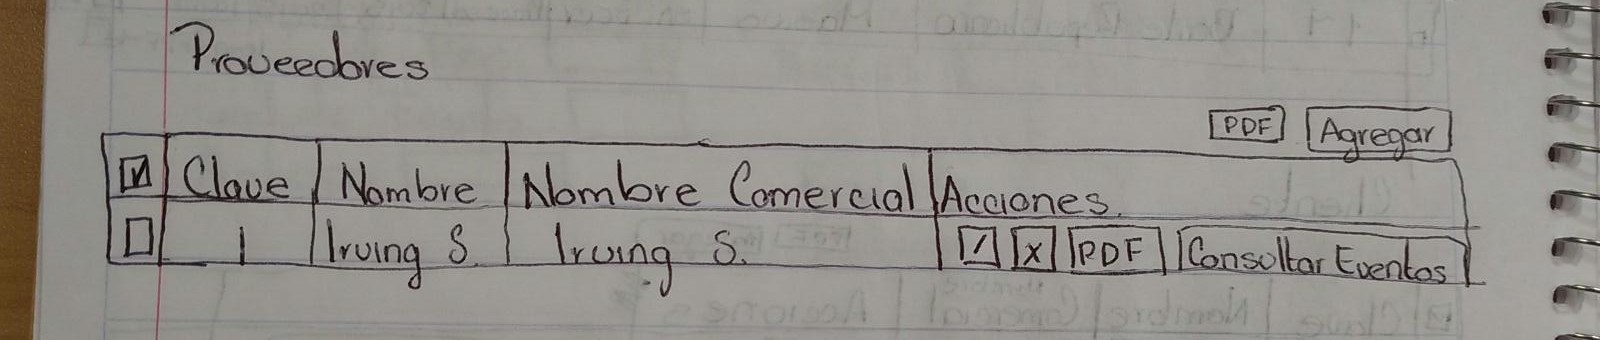 Proveedores
PDF Agregar
Clave Nombre Nombre Comercial Acciones
1 Irving S. Irving S. x PDF Consultar Eventos